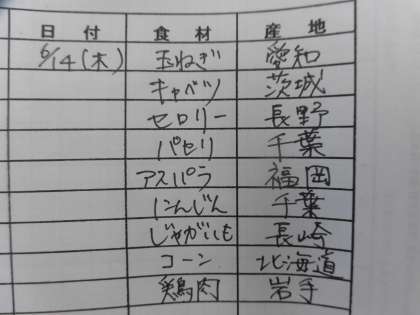 日付 食材 産地
6/14(木) 玉ねぎ 愛知
キャベツ 茨城
セロリー 長野
パセリ 千葉
アスパラ 福岡
にんじん 千葉
じゃがいも 長崎
コーン 北海道
鶏肉 岩手